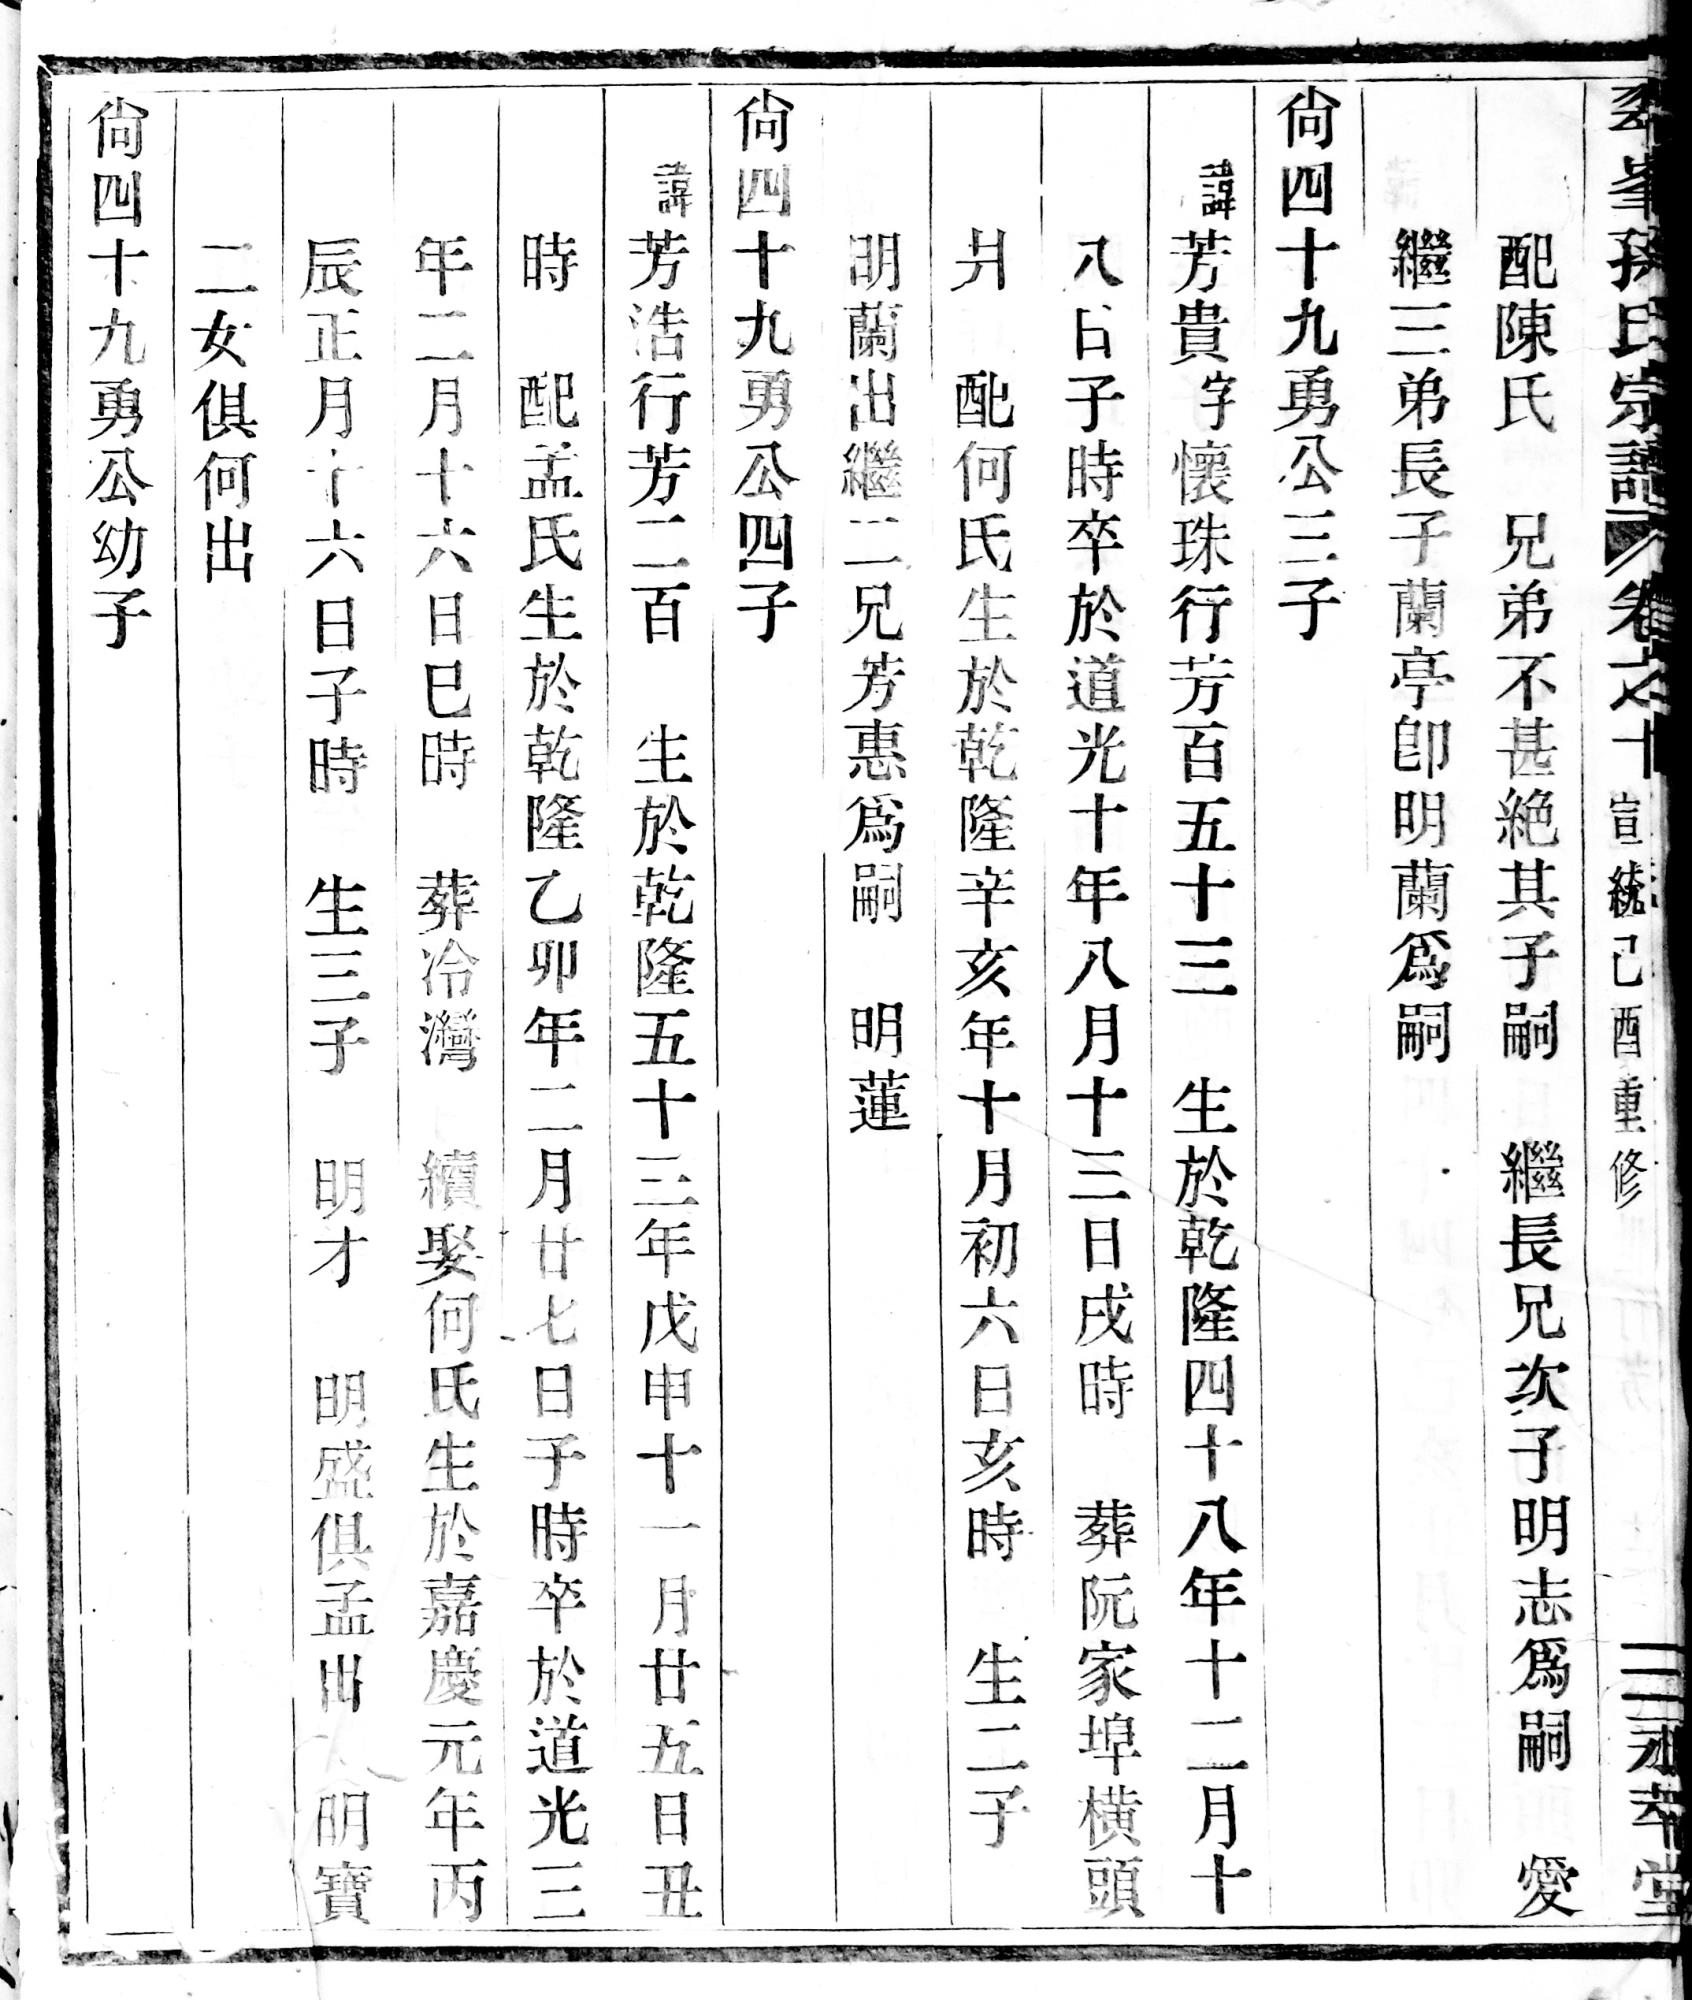 峯孫氏宗譜 卷之十 宣統己酉重修 三 永萃堂
配陳氏 兄弟不甚絶其子嗣 繼長兄次子明志爲嗣 愛
繼三弟長子蘭亭卽明蘭爲嗣
尙四十九勇公三子
諱芳貴字懷珠行芳百五十三 生於乾隆四十八年十二月十
八日子時卒於道光十年八月十三日戌時 葬阮家埠横頭
爿 配何氏生於乾隆辛亥年十月初六日亥時 生二子
明蘭出繼二兄芳惠爲嗣 明蓮
尙四十九勇公四子
諱芳浩行芳二百 生於乾隆五十三年戊申十一月廿五日丑
時 配孟氏生於乾隆乙卯年二月廿七日子時卒於道光三
年二月十六日巳時 葬冷灣 續娶何氏生於嘉慶元年丙
辰正月十六日子時 生三子 明才 明盛俱孟出 明寶
二女俱何出
尙四十九勇公幼子